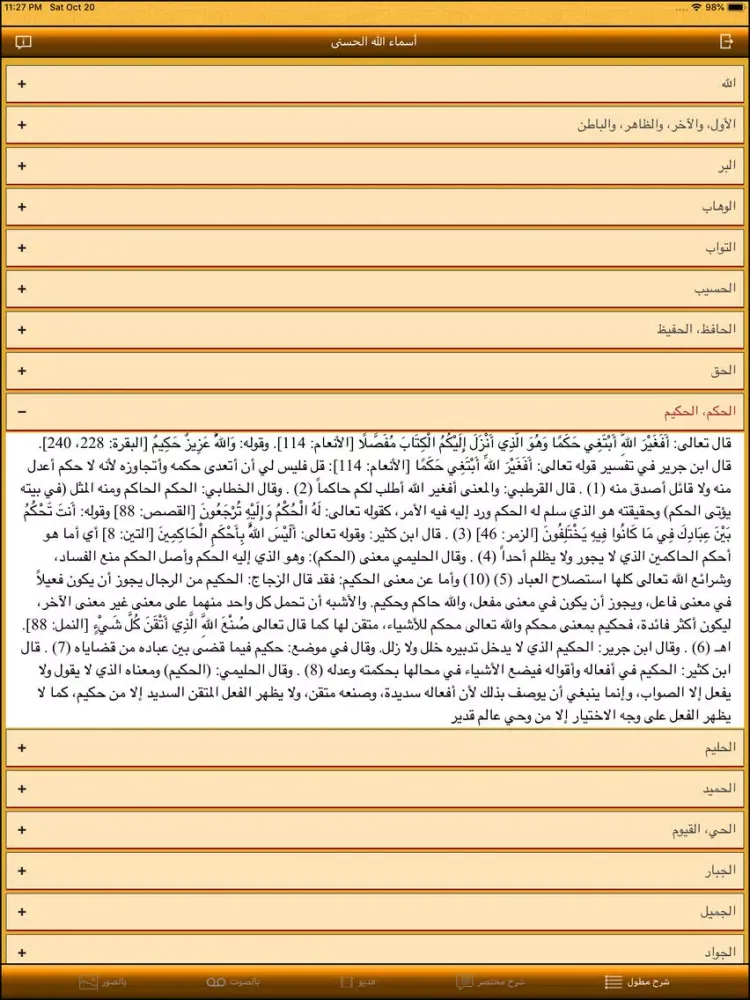 11:27 PM Sat Oct 20 98%
أسماء الله الحسنى
الله
الأول، والآخر، والظاهر، والباطن
البر
الوهاب
التواب
الحسيب
الحافظ، الحفيظ
الحق
الحكم، الحكيم
قال تعالى: أَفَغَيْرَ اللّهِ أَبْتَغِي حَكَمًا وَهُوَ الَّذِي أَنْزَلَ إِلَيْكُمُ الْكِتَابَ مُفَصَّلًا [الأنعام: 114]. وقوله: وَاللّهُ عَزِيزٌ حَكِيمٌ [البقرة: 228، 240].
قال ابن جرير في تفسير قوله تعالى: أَفَغَيْرَ اللّهِ أَبْتَغِي حَكَمًا [الأنعام: 114]: قل فليس لي أن أتعدى حكمه وأتجاوزه لأنه لا حكم أعدل
منه ولا قائل أصدق منه (1) . قال القرطبي: والمعنى أفغير الله أطلب لكم حاكماً (2) . وقال الخطابي: الحكم الحاكم ومنه المثل (في بيته
يؤتى الحكم) وحقيقته هو الذي سلم له الحكم ورد إليه فيه الأمر، كقوله تعالى: لَهُ الْحُكْمُ وَإِلَيْهِ تُرْجَعُونَ [القصص: 88] وقوله: أَنتَ تَحْكُمُ
بَيْنَ عِبَادِكَ فِي مَا كَانُوا فِيهِ يَخْتَلِفُونَ [الزمر: 46] (3) . قال ابن كثير: وقوله تعالى: أَلَيْسَ اللّهُ بِأَحْكَمِ الْحَاكِمِينَ [التين: 8] أي أما هو
أحكم الحاكمين الذي لا يجور ولا يظلم أحداً (4) . وقال الحليمي معنى (الحكم): وهو الذي إليه الحكم وأصل الحكم منع الفساد،
وشرائع الله تعالى كلها استصلاح العباد (5) (10) وأما عن معنى الحكيم: فقد قال الزجاج: الحكيم من الرجال يجوز أن يكون فعيلاً
في معنى فاعل، ويجوز أن يكون في معنى مفعل، والله حاكم وحكيم. والأشبه أن تحمل كل واحد منهما على معنى غير معنى الآخر،
ليكون أكثر فائدة، فحكيم بمعنى محكم والله تعالى محكم للأشياء، متقن لها كما قال تعالى صُنْعَ اللَّهِ الَّذِي أَتْقَنَ كُلَّ شَيْءٍ [النمل: 88].
اهـ (6) . وقال ابن جرير: الحكيم الذي لا يدخل تدبيره خلل ولا زلل. وقال في موضع: حكيم فيما قضى بين عباده من قضاياه (7) . قال
ابن كثير: الحكيم في أفعاله وأقواله فيضع الأشياء في محالها بحكمته وعدله (8) . وقال الحليمي: (الحكيم) ومعناه الذي لا يقول ولا
يفعل إلا الصواب، وإنما ينبغي أن يوصف بذلك لأن أفعاله سديدة، وصنعه متقن، ولا يظهر الفعل المتقن السديد إلا من حكيم، كما لا
يظهر الفعل على وجه الاختيار إلا من وحي عالم قدير
الحليم
الحميد
الحي، القيوم
الجبار
الجميل
الجواد
شرح مطول شرح مختصر فديو بالصوت بالصور